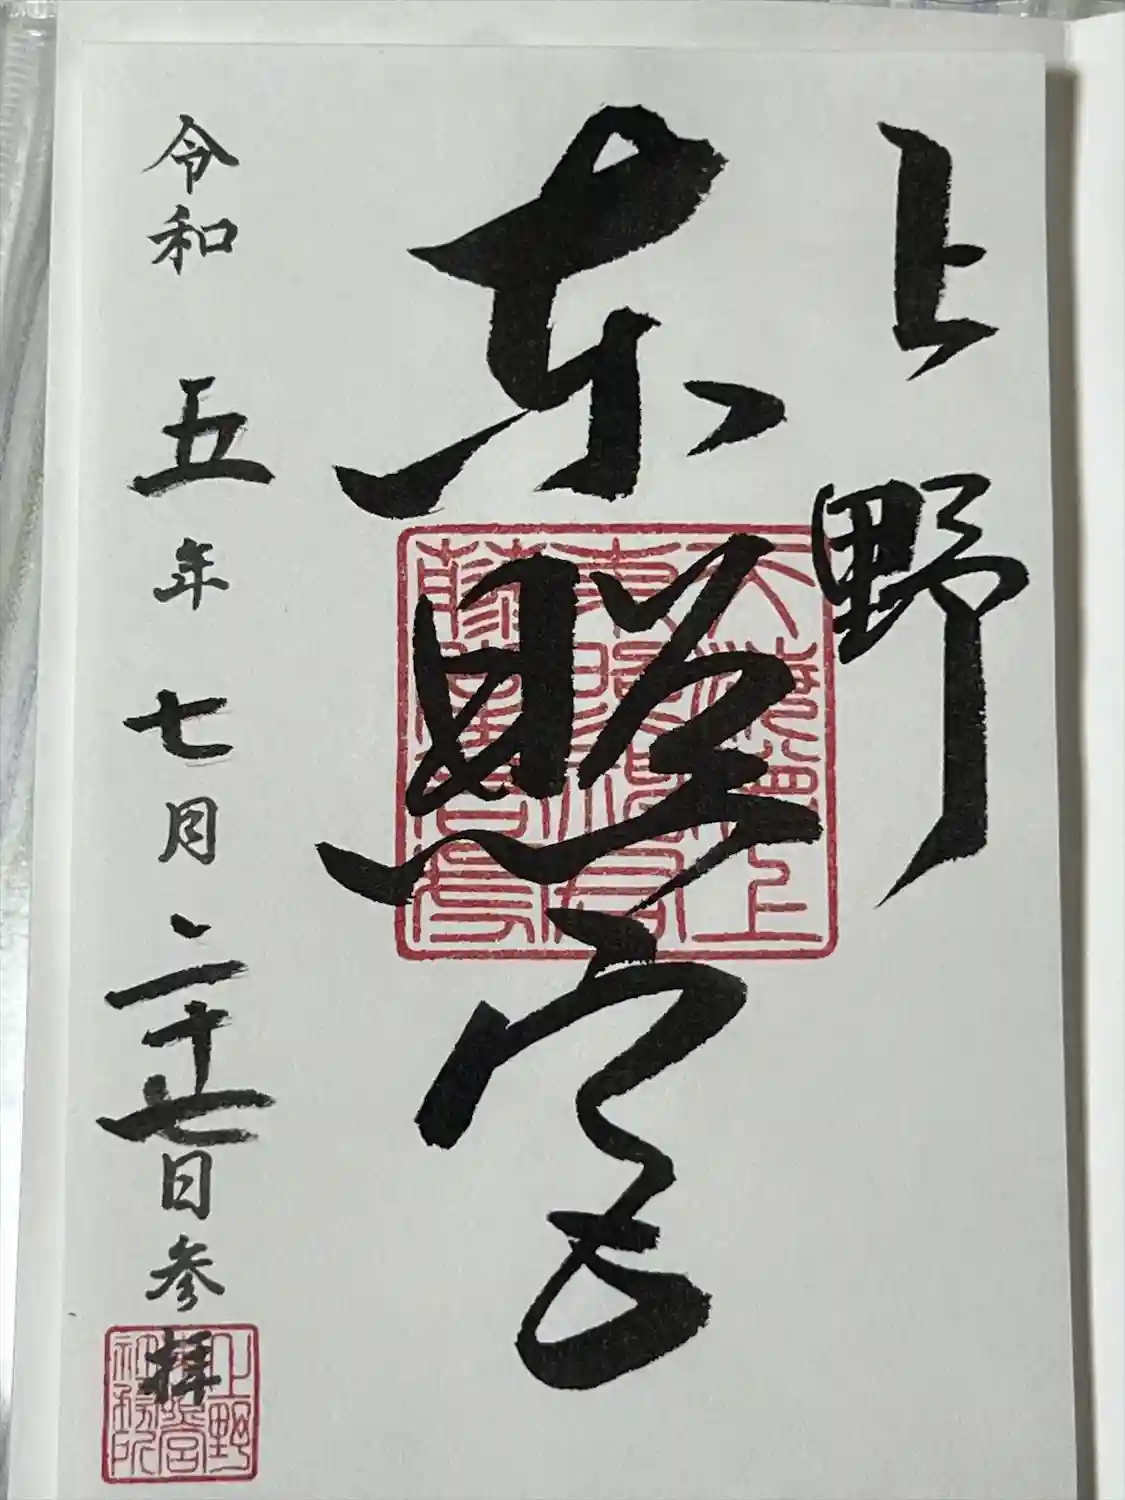 上野
東照宮
令和五年七月二十七日参拝
上野
東照宮
社務所